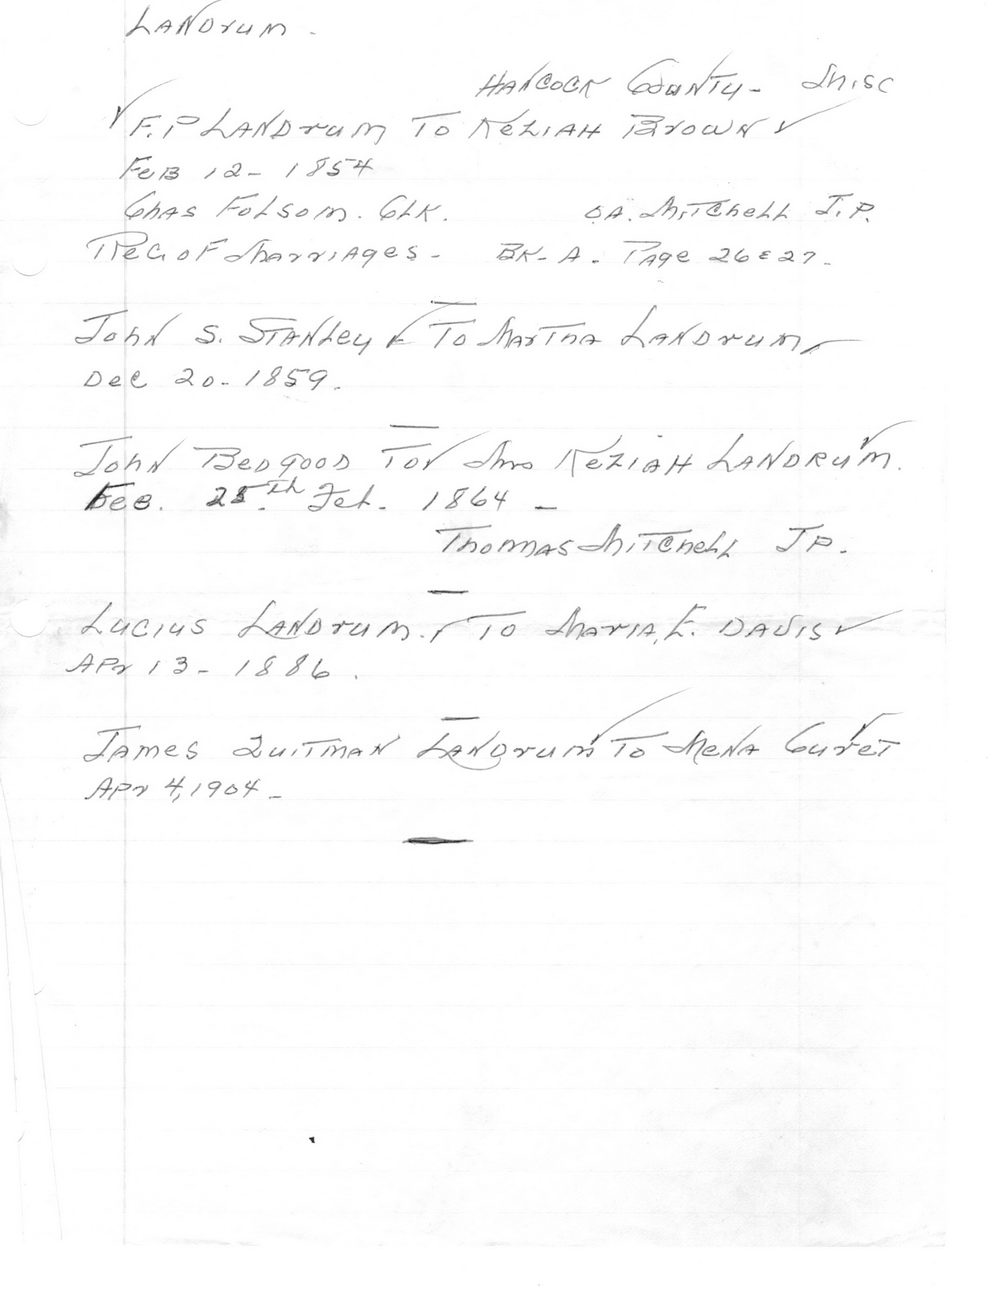 LANDrUM.
HANCOCK COUNTY- Misc
✓ F.P LANDrUM TO KEZIAH BROWN ✓
FEB 12- 1854
Chas FOLsom. CLK. MiTChELL J.P.
REG OF MarriAges- BK-A. PAge 26 & 27.
John S. STANLey ✓ TO MArTHA LANDrum ✓
Dec 20- 1859.
John BEDgOOD TO ✓ Mrs KEZIAH LANDRUM. ✓
FEB. Feb. 1864 -
Thomas MiTChELL JP.
LUCIUS LANDrum. ✓ TO MAriA, E. DAVIS ✓
APr 13- 1886.
JAMES QUITMAN LANDrum ✓ TO MENA CUrET ✓
APr 4, 1904-